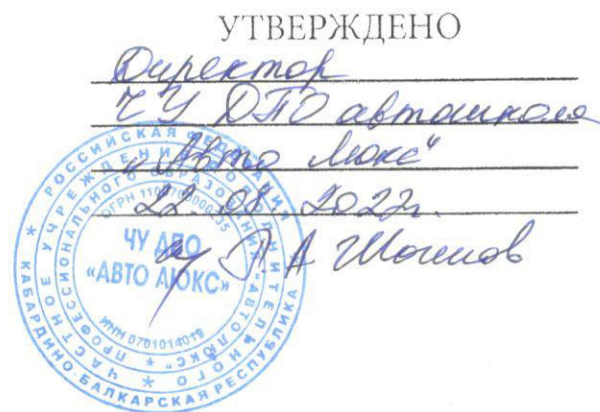 УТВЕРЖДЕНО
Директор
ЧУ ДПО автошкола
"Авто Люкс"
22.08.2022г.
РОССИЙСКАЯ ФЕДЕРАЦИЯ
КАБАРДИНО-БАЛКАРСКАЯ РЕСПУБЛИКА
ЧАСТНОЕ УЧРЕЖДЕНИЕ ДОПОЛНИТЕЛЬНОГО
ПРОФЕССИОНАЛЬНОГО ОБРАЗОВАНИЯ "АВТОЛЮКС"
ОГРН
ЧУ ДПО
«АВТО ЛЮКС»
ИНН 0701014019